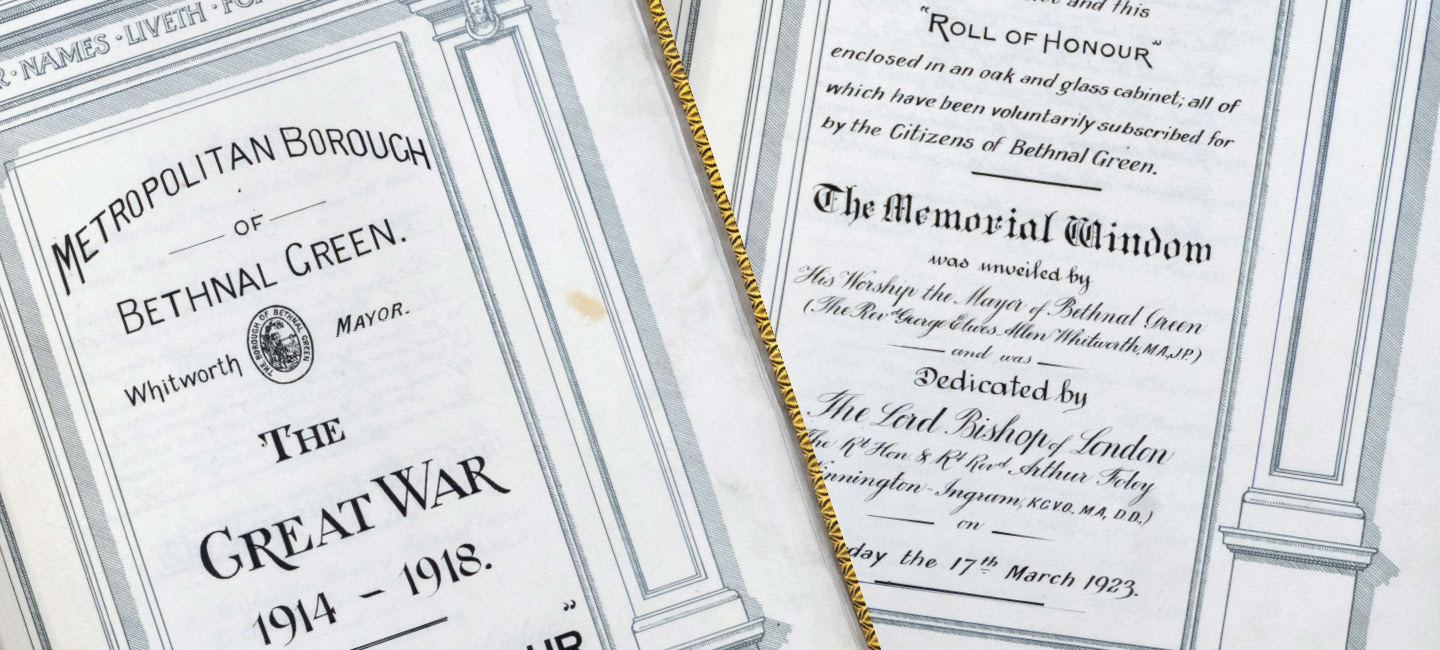 NAMES · LIVETH ·
METROPOLITAN BOROUGH
OF
BETHNAL GREEN.
THE BOROUGH OF BETHNAL GREEN
Whitworth MAYOR.
THE
GREAT WAR
1914 – 1918.
"
and this
"ROLL OF HONOUR"
enclosed in an oak and glass cabinet; all of
which have been voluntarily subscribed for
by the Citizens of Bethnal Green.
The Memorial Window
was unveiled by
His Worship the Mayor of Bethnal Green
(The Revd George Elwes Allen Whitworth, MA, J.P.)
and was
Dedicated by
The Lord Bishop of London
The Rt Hon & Rt Revd Arthur Foley
nnington-Ingram, K.C.V.O. MA, D.D.)
on
day the 17th March 1923.